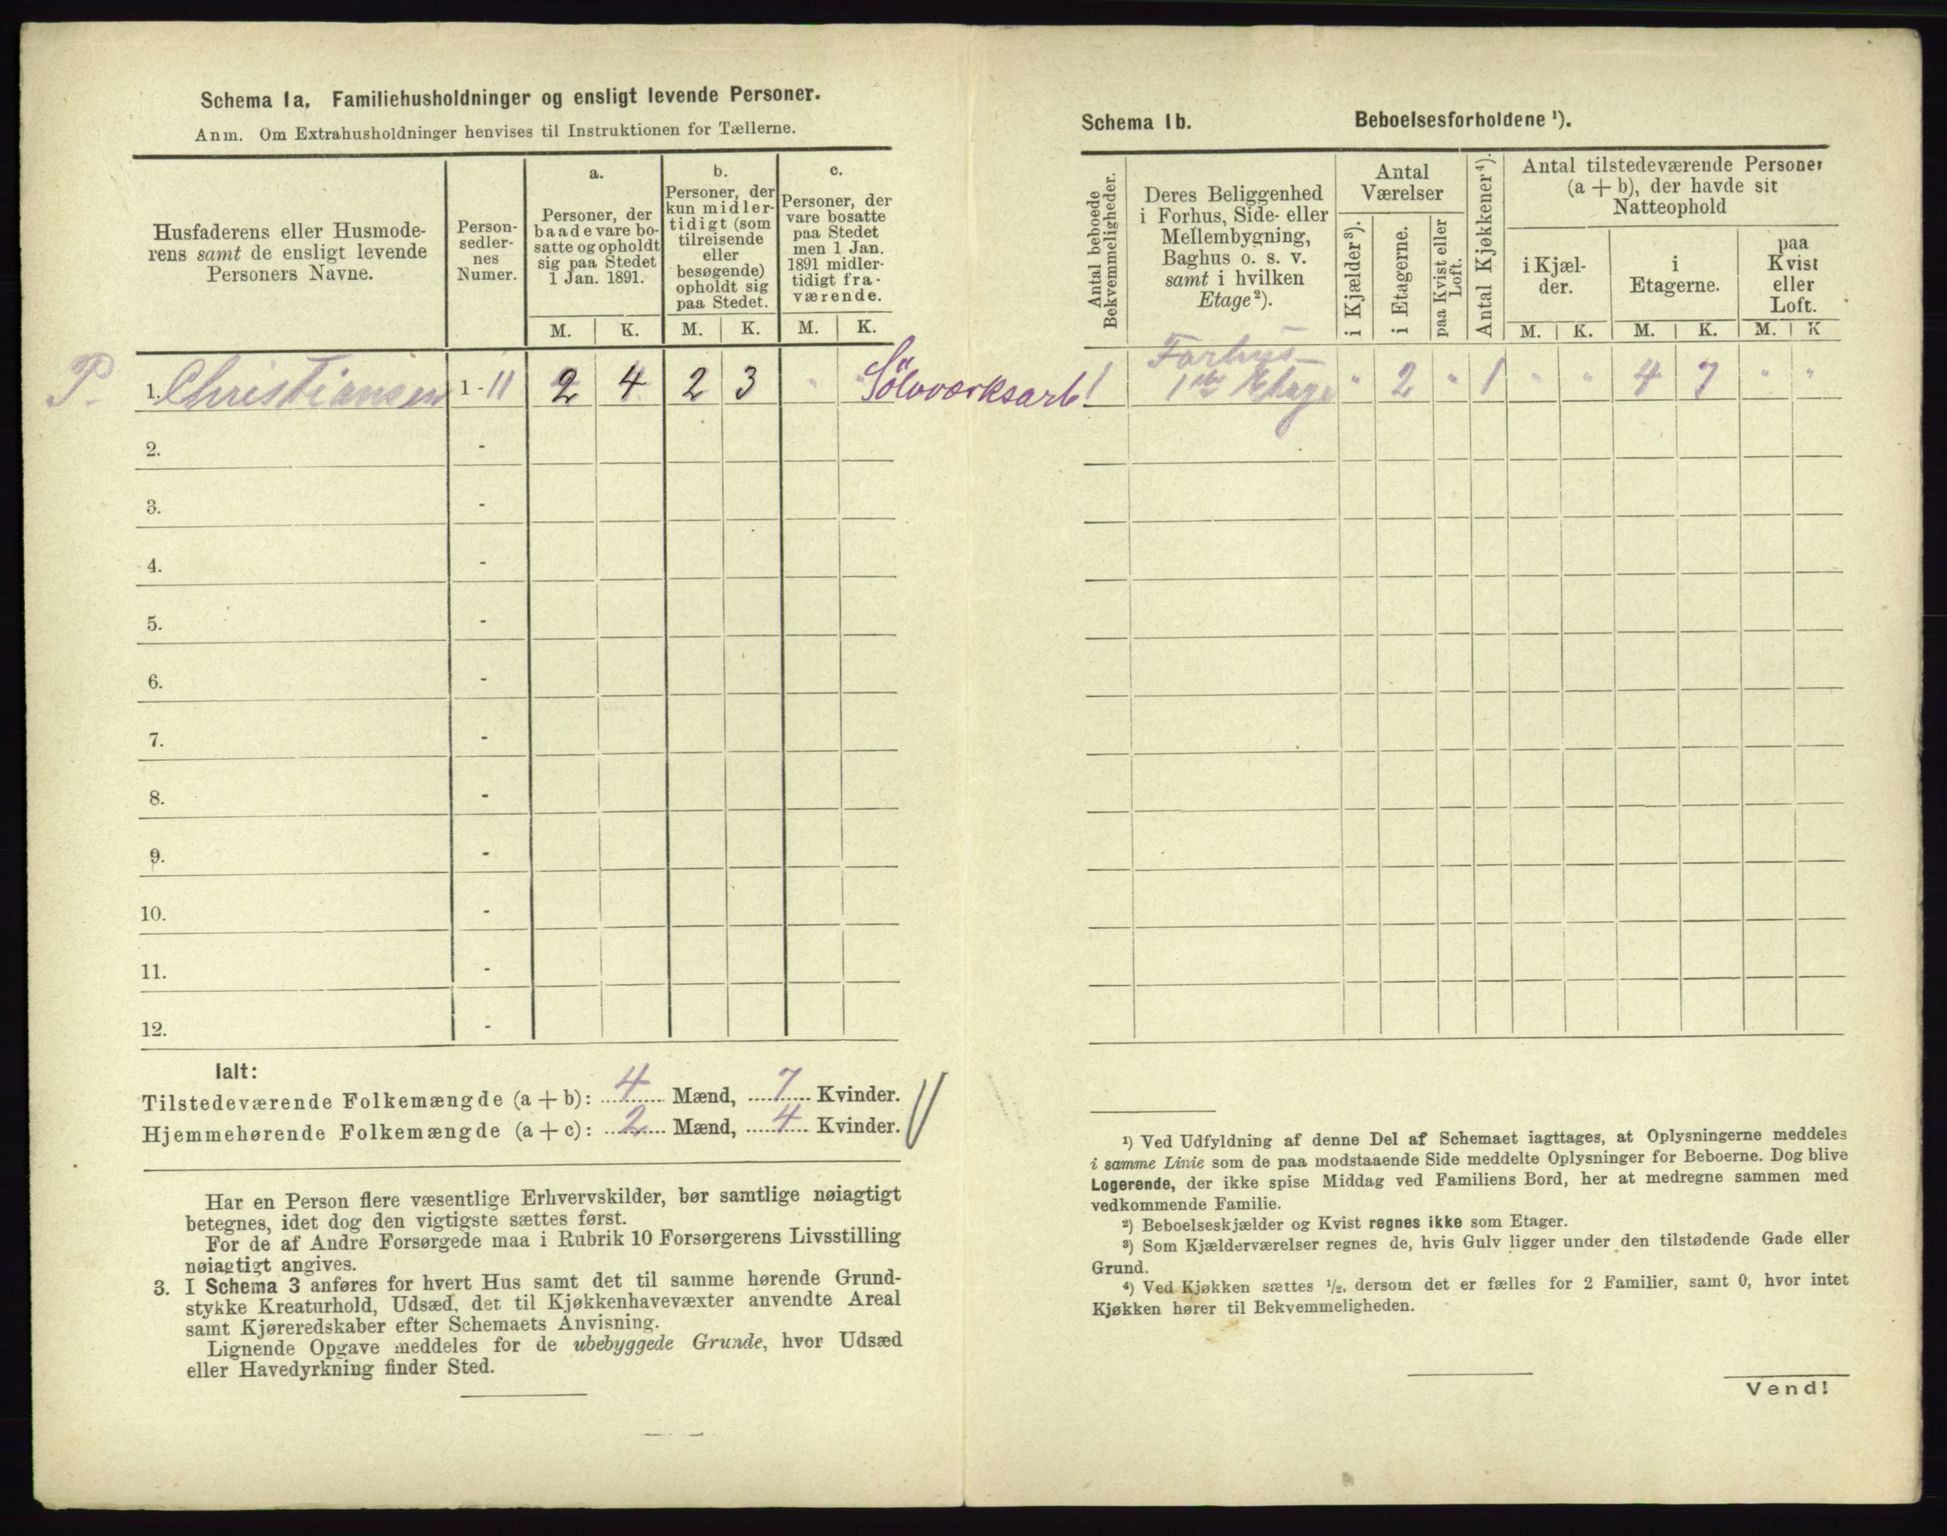 Schema 1a, Familiehusholdninger og ensligt levende Personer.
Anm. Om Extrahusholdninger henvises til Instruktionen for Tællerne.
Husfaderens eller Husmode-
rens samt de ensligt levende
Personers Navne.
Person-
sedler-
nes
Numer.
a.
Personer, der
baade vare bo-
satte og opholdt
sig paa Stedet
1 Jan. 1891.
b.
Personer, der
kun midler-
tidigt (som
tilreisende
eller
besøgende)
opholdt sig
paa Stedet.
c.
Personer, der
vare bosatte
paa Stedet
men 1 Jan.
1891 midler-
tidigt fra-
værende.
M. K. M. K. M. K.
P. 1. Christiansen 1 - 11 2 4 2 3 " " Sölvværksarb
2. -
3. -
4. -
5. -
6. -
7. -
8. -
9. -
10. -
11. -
12. -
Ialt:
Tilstedeværende Folkemængde (a + b): 4 Mænd, 7 Kvinder.
Hjemmehørende Folkemængde (a + c): 2 Mænd, 4 Kvinder.
Har en Person flere væsentlige Erhvervskilder, bør samtlige nøiagtigt
betegnes, idet dog den vigtigste sættes først.
For de af Andre Forsørgede maa i Rubrik 10 Forsørgerens Livsstilling
nøiagtigt angives.
3. I Schema 3 anføres for hvert Hus samt det til samme hørende Grund-
stykke Kreaturhold, Udsæd, det til Kjøkkenhavevæxter anvendte Areal
samt Kjøreredskaber efter Schemaets Anvisning.
Lignende Opgave meddeles for de ubebyggede Grunde, hvor Udsæd
eller Havedyrkning finder Sted.
Schema 1b. Beboelsesforholdene ¹).
Antal beboede
Bekvemmeligheder.
Deres Beliggenhed
i Forhus, Side- eller
Mellembygning,
Baghus o. s. v.
samt i hvilken
Etage ²).
Antal
Værelser
i Kjælder ³).
i Etagerne.
paa Kvist eller
Loft.
Antal Kjøkkener ⁴).
Antal tilstedeværende Personer
(a + b), der havde sit
Natteophold
i Kjæl-
der.
i
Etagerne.
paa
Kvist
eller
Loft.
M. K. M. K. M. K
1 Forhus
1ste Etage " 2 " 1 " " 4 7 " "
¹) Ved Udfyldning af denne Del af Schemaet iagttages, at Oplysningerne meddeles
i samme Linie som de paa modstaaende Side meddelte Oplysninger for Beboerne. Dog blive
Logerende, der ikke spise Middag ved Familiens Bord, her at medregne sammen med
vedkommende Familie.
²) Beboelseskjælder og Kvist regnes ikke som Etager.
³) Som Kjælderværelser regnes de, hvis Gulv ligger under den tilstødende Gade eller
Grund.
⁴) Ved Kjøkken sættes ½, dersom det er fælles for 2 Familier, samt 0, hvor intet
Kjøkken hører til Bekvemmeligheden.
Vend!